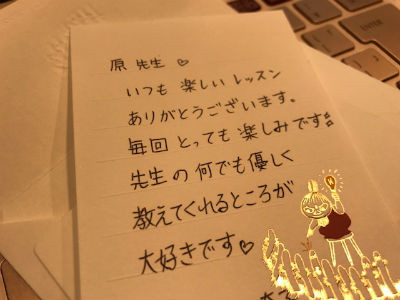 原 先生 ♡
いつも 楽しい レッスン
ありがとうございます。
毎回 とっても 楽しみです
先生の 何でも 優しく
教えてくれるところが
大好きです♡